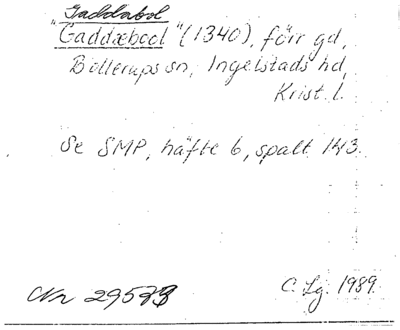 Gaddabol
"Gaddæbool" (1340), förr gd,
Bollerups sn, Ingelstads hd,
Krist. l.
Se SMP, häfte 6, spalt 143.
C. Lg. 1989.
Nr